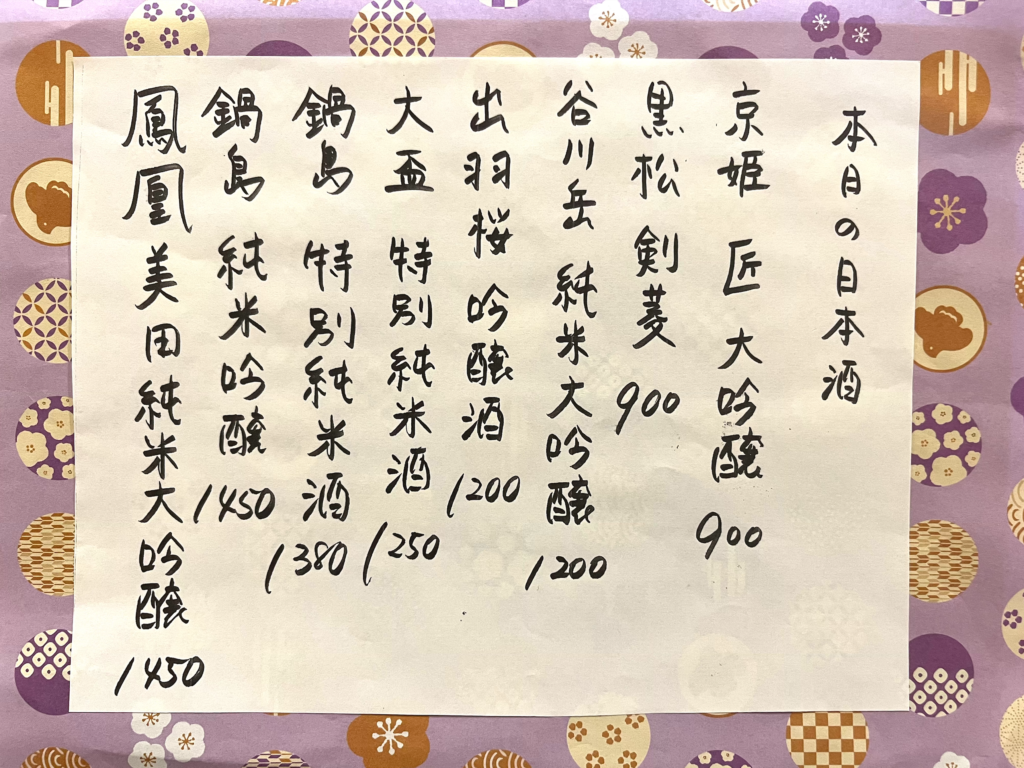 本日の日本酒
京姫 匠 大吟醸 900
黒松 剣菱 900
谷川岳 純米大吟醸 1200
出羽桜 吟醸酒 1200
大盃 特別純米酒 1250
鍋島 特別純米酒 1380
鍋島 純米吟醸 1450
鳳凰美田純米大吟醸 1450